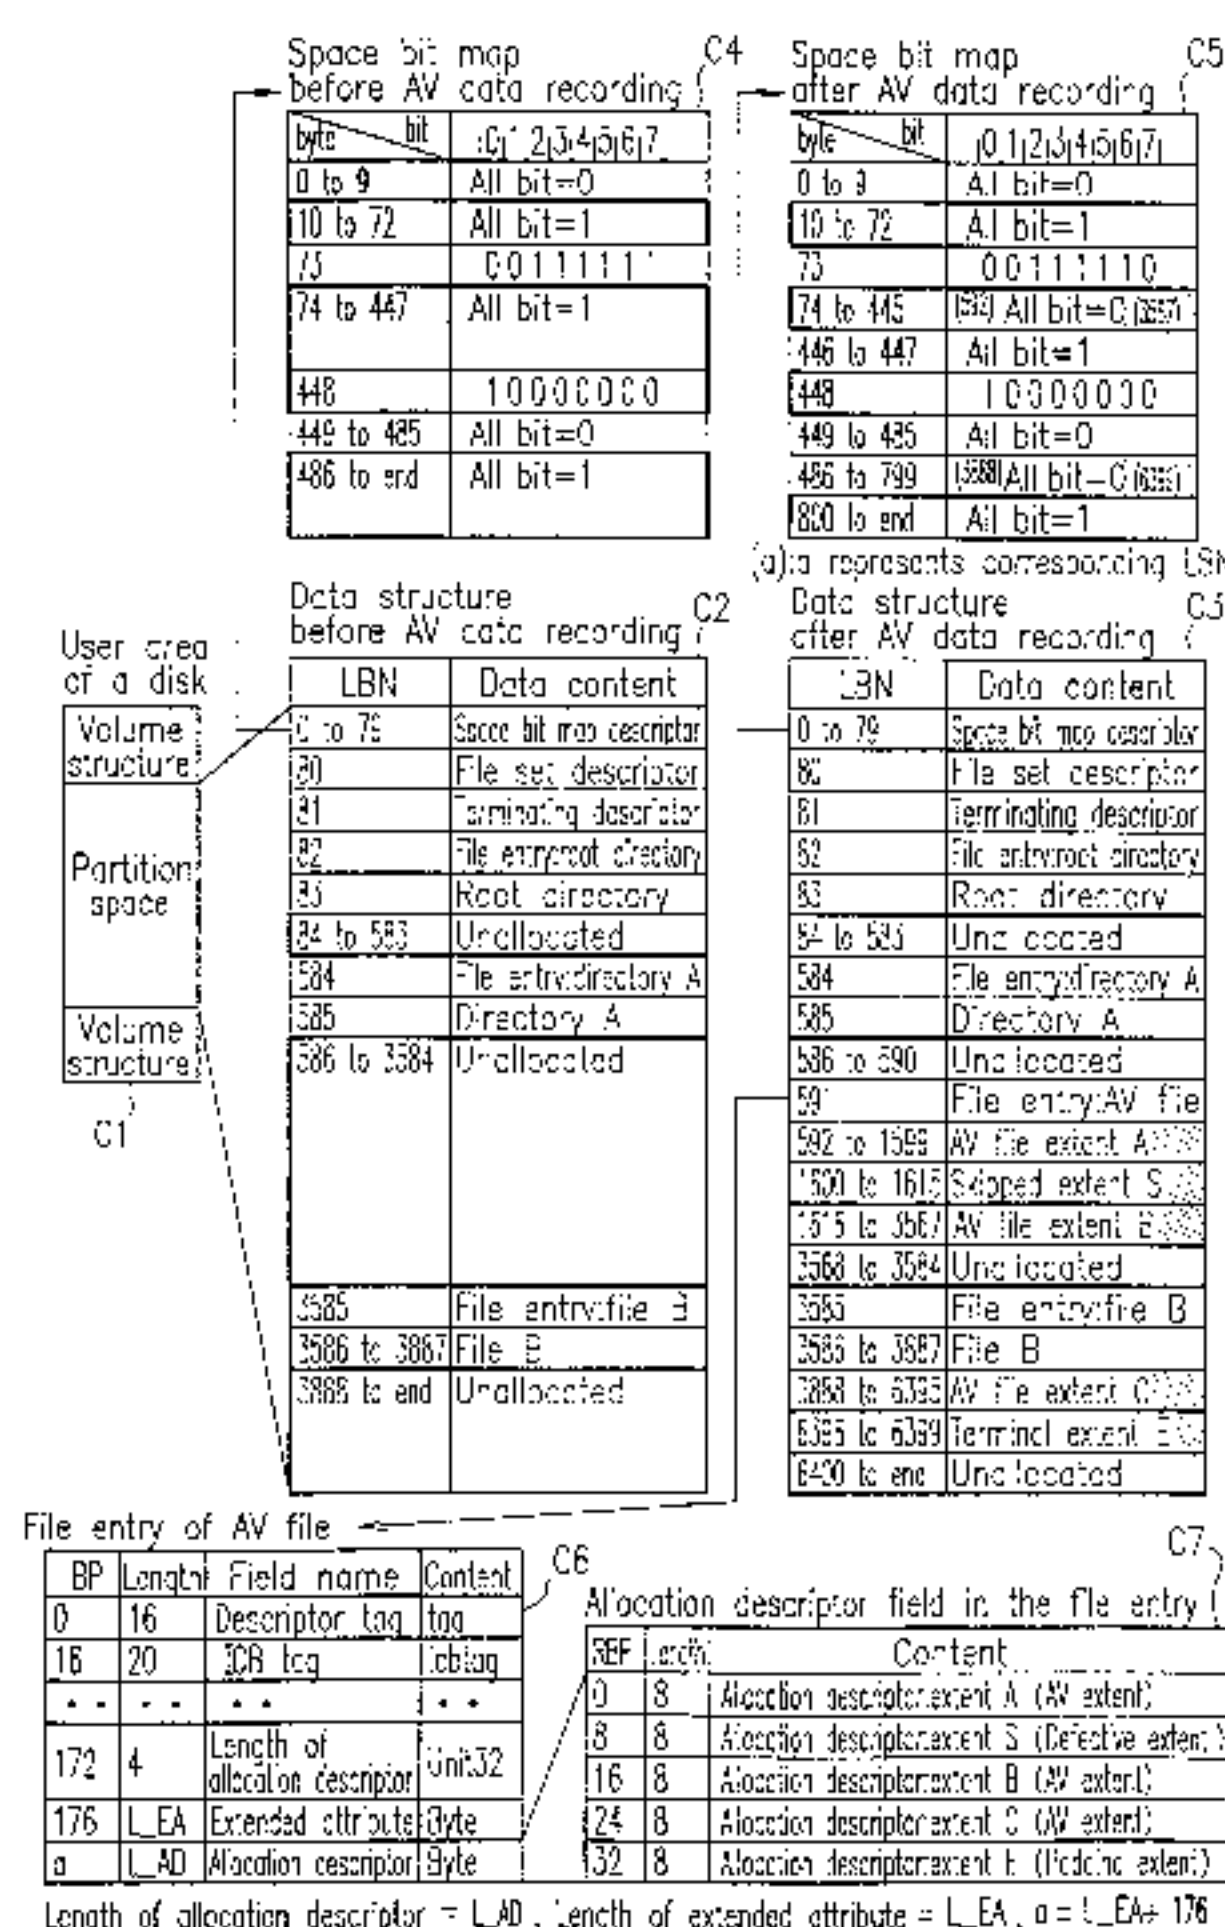 Space bit map
before AV data recording
C4
byte bit 0 1 2 3 4 5 6 7
0 to 9 All bit=0
10 to 72 All bit=1
73 0 0 1 1 1 1 1
74 to 447 All bit=1
448 1 0 0 0 0 0 0 0
449 to 485 All bit=0
486 to end All bit=1
Space bit map
after AV data recording
C5
byte bit 0 1 2 3 4 5 6 7
0 to 9 All bit=0
10 to 72 All bit=1
73 0 0 1 1 1 1 1 0
74 to 445 All bit=0
446 to 447 All bit=1
448 1 0 0 0 0 0 0 0
449 to 485 All bit=0
486 to 799 All bit=0
800 to end All bit=1
(a):a represents corresponding LSN
User area
of a disk
Volume
structure
Partition
space
Volume
structure
C1
Data structure
before AV data recording
C2
LBN Data content
0 to 79 Space bit map descriptor
80 File set descriptor
81 Terminating descriptor
82 File entry:root directory
83 Root directory
84 to 583 Unallocated
584 File entry:directory A
585 Directory A
586 to 3584 Unallocated
3585 File entry:file B
3586 to 3887 File B
3888 to end Unallocated
Data structure
after AV data recording
C3
LBN Data content
0 to 79 Space bit map descriptor
80 File set descriptor
81 Terminating descriptor
82 File entry:root directory
83 Root directory
84 to 583 Unallocated
584 File entry:directory A
585 Directory A
586 to 590 Unallocated
591 File entry:AV file
592 to 1599 AV file extent A
1600 to 1615 Skipped extent S
1616 to 3567 AV file extent B
3568 to 3584 Unallocated
3585 File entry:file B
3586 to 3887 File B
3888 to 6395 AV file extent C
6396 to 6399 Terminal extent E
6400 to end Unallocated
File entry of AV file
C6
BP Length Field name Content
0 16 Descriptor tag tag
16 20 ICB tag icbtag
172 4 Length of allocation descriptor Unit32
176 L_EA Extended attribute Byte
a L_AD Allocation descriptor Byte
C7
Allocation descriptor field in the file entry
RBP Length Content
0 8 Allocation descriptor:extent A (AV extent)
8 8 Allocation descriptor:extent S (Defective extent)
16 8 Allocation descriptor:extent B (AV extent)
24 8 Allocation descriptor:extent C (AV extent)
32 8 Allocation descriptor:extent E (Padding extent)
Length of allocation descriptor = L_AD, Length of extended attribute = L_EA, a = L_EA+ 176